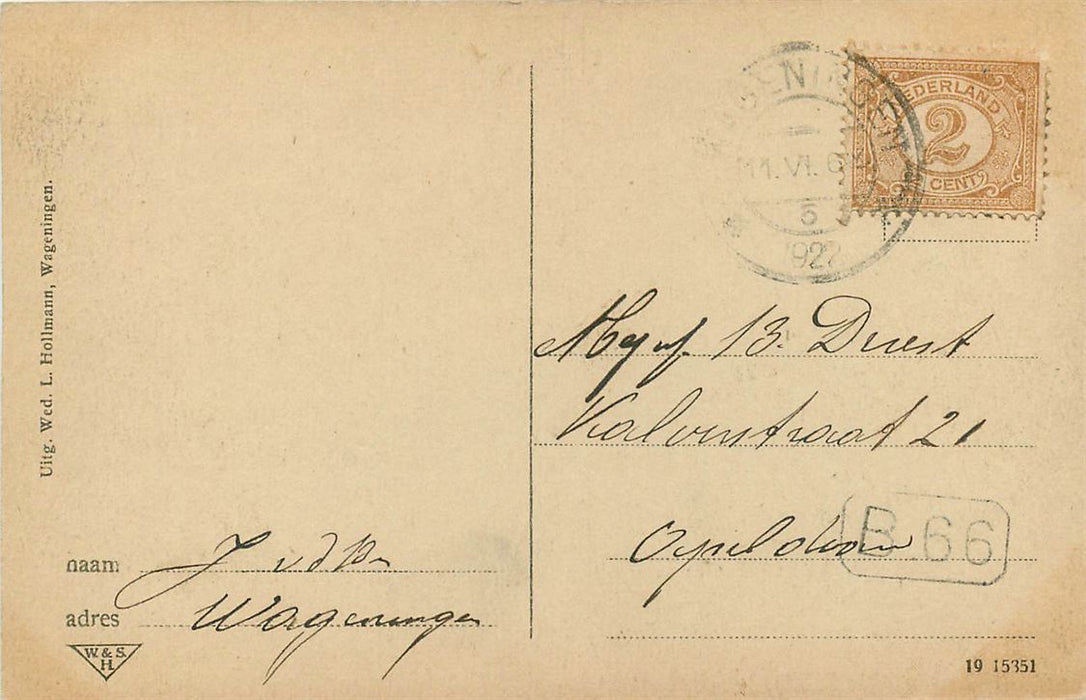 Uitg. Wed. L. Hollmann, Wageningen.
WAGENINGEN
11.VI.
5
1922
NEDERLAND
2
CENT
Mejuf. B. Driest
Kalverstraat 21
Apeldoorn
B.66
naam J vd
adres Wageningen
W. & S.
H.
19 15351